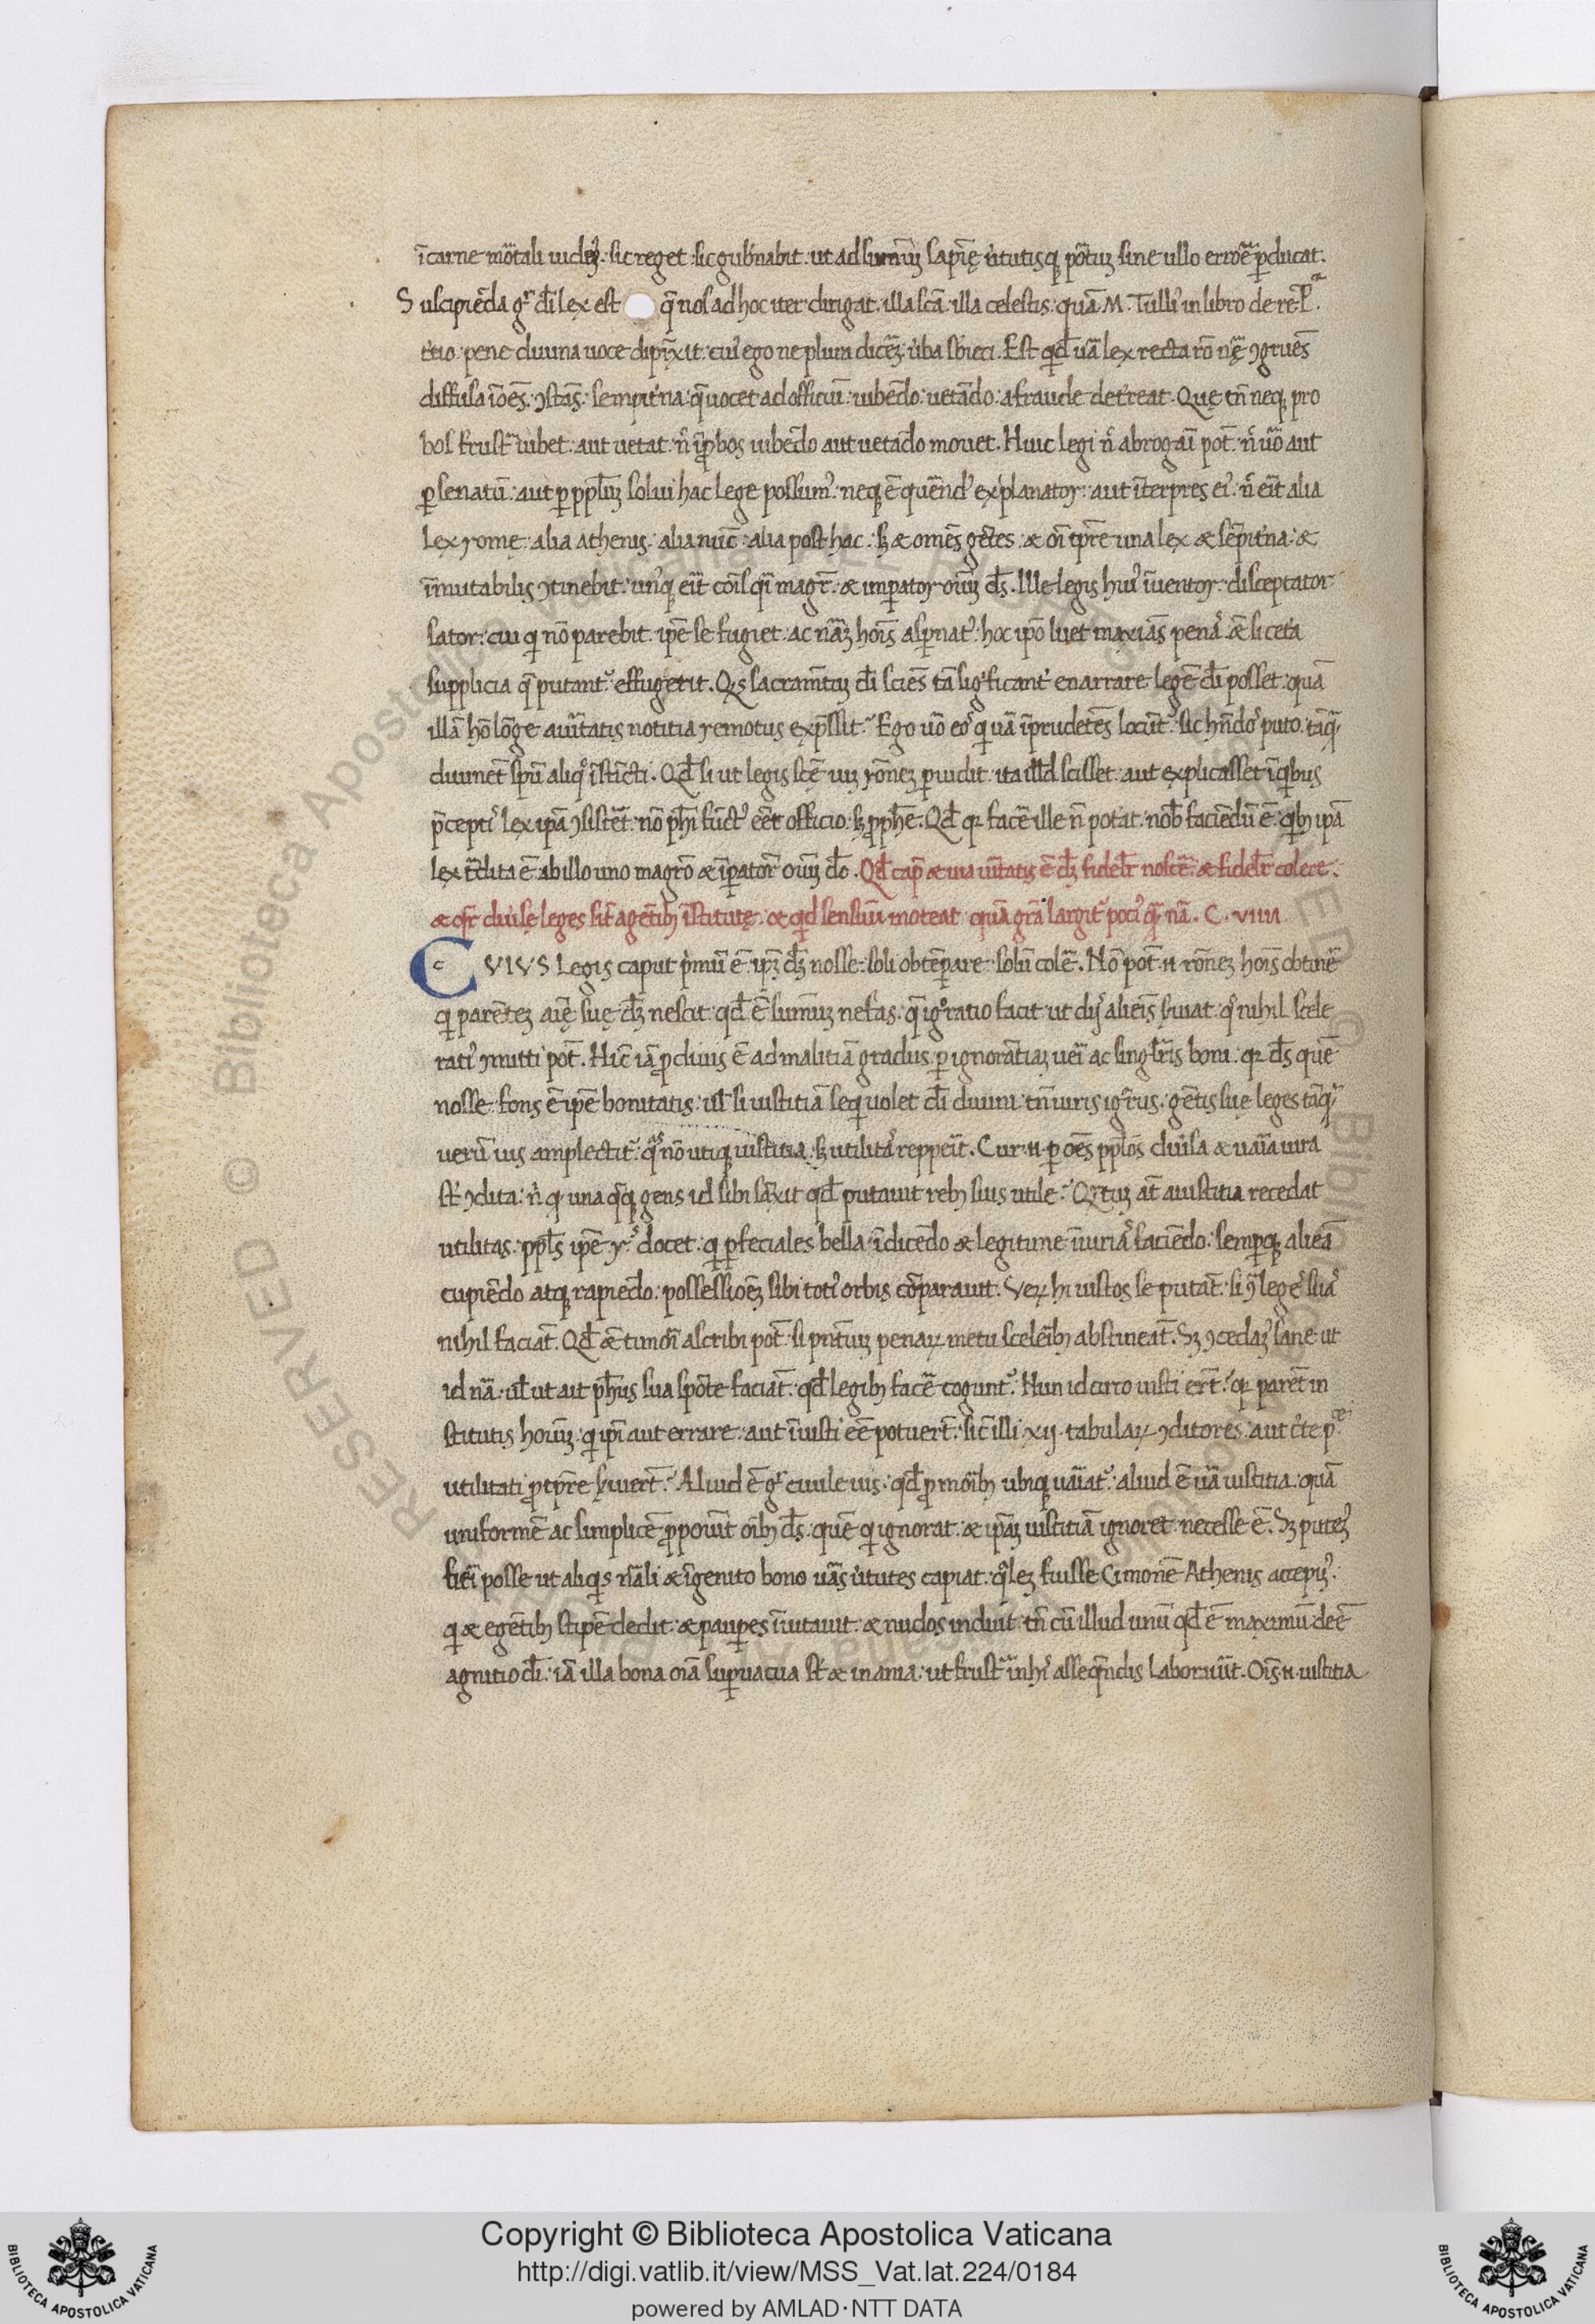 ī carne mōtali uidem᷒. sic reget. sic gub̄nabit. ut ad summū sapię̄ uⁱtutisq; pōtū sine ullo errōe ꝑducat.
Suscipiēda gͦ d̄i lex est q̄ nos ad hoc iter dirigat. illa sc̄a. illa celestis. quā .M. Tulli᷒ in libro de re .P.ᵃ
t̄tio. pene diuina uoce dipīxit. cui᷒ ego ne plura dicerē. ūba sb̄ieci. Est qͥdē uā lex recta rō nę̄ ↄgruēs
diffusa ī oēs. ↄstās. sempit̄na. q̄ uocet ad officiū. iubēdo. uetādo. a fraude det̄reat. Quę tn̄ neq; pro
bos frustᵃ iubet. aut uetat. n̄ īꝓbos iubēdo aut uetādo mouet. Huic legi n̄ abrogari pōt. n̄ uō aut
ꝑ senatū. aut ꝑ pplm̄ solui hac lege possum᷒. neq; ē quēnd᷒ explanator. aut īterpres ei᷒. n̄ erit alia
lex romę. alia athenis. alia nūc. alia post hac. s; & omēs gētes. & oī tp̄re una lex & sēpit̄na. &
īmutabilis ↄtinebit. un᷒q; erit cōis qͣsi magr̄. & imꝑator oiūm d̄s. Ille legis hui᷒ īuentor. disceptator
lator. cui qͥ nō parebit. ip̄e se fugiet. ac nāȝ hoīs asꝑnat᷒. hoc ip̄o luet maxiās penas. & si cet̄a
supplicia q̄ putant᷒ effugerit. Qͥs sacramtūȝ d̄i sciēs tā sigͥficant᷒ enarrare legē d̄i posset. quā
illā hō lōge a uīTatis notitia remotus exp̄ssit? Ego uō eos qͥ uā īprudētes locūt᷒. sic hn̄dos puto. tāqͣ
diuinēt spū aliqͦ īstīcti. Qd̄ si ut legis sc̄ę uiȝ rōnēȝ ꝑuidit. ita illd̄ scisset. aut explicasset ī qͥbus
p̄ceptis lex ip̄a ↄsistēt. nō ph̄i fūct᷒ eēt officio. s; ꝓph̄e. Qd̄ qꝛ facē ille n̄ potat. nob̄ faciēdū ē. qͥb; ip̄a
lex t̄dita ē ab illo uno magrō & īꝑatorē oiūm dō. Qd̄ cap̄ & uia uīTatis ē dȝ fidelr̄ noscē. & fidelr̄ colere.
& qr̄ diuīse leges sīt a gētib; īstitutę. & qͥd sensiuū moreat quā grā largit᷒ poci᷒ qͣ nā. C. VIIII
CVIVS Legis caput pͥmū ē. ip̄ȝ dȝ nosse. soli obtēꝑare. solū colē. Nō pōt .n. rōnēȝ hoīs obtinē
qͥ parētēȝ aīę suę dȝ nescit. qd̄ ē summū nefas. q̄ igͦratio facit ut dijs alieīs s̄uiat. qͦ nihil scele
rati᷒ ↄmitti pōt. Hīc iā ꝓcliuis ē ad malitiā gradus. ꝑ ignorātiaȝ ueri ac singlāris boni. qꝛ d̄s quē
nosse. fons ē ip̄e bonitatis. ul̄ si iustitiā sequi uolet d̄i diuini. tn̄ iuris igͦrus. gētis suę leges tāqͣ
uerū ius amplectit᷒. qͣs nō utiq; iustitia. s; utilitas repperit. Cur .n. ꝑ oēs pplōs diuīsa & uāia iura
st᷒ ↄdita. n̄ qͥ una qͣq; gens id sibi sāxit qd̄ putauit reb; suis utile? Qͣtū aT a iustitia recedat
utilitas. ppl̄s ip̄e r᷒. docet. qͥ ꝑ feciales bella īdicēdo & legitime īiurias faciēdo. semꝑq; aliēa
cupiēdo atq; rapiēdo. possessioēȝ sibi toti᷒ orbis cōparauit. Veꝝ hi iustos se putāt. si ↄᵃ leges suas
nihil faciāt. Qd̄ & timori ascribi pōt. si pn̄tiūȝ penaꝝ metu sceleīb; abstineāt. Sȝ ↄcedam᷒ sane ut
id nā. ul̄ ut ait ph̄us sua spōte faciāt. qd̄ legib; facē cogunt᷒. Nun id circo iusti erūt? qꝛ parēt in
stitutis hoiūm. qͥ ip̄i aut errare. aut īiusti eē potuerūt. sic illi .xij. tabulaꝝ ↄditores. aut c̄te pᵉ.
utilitati ꝓ tp̄re s̄uierūt? Aliud ē gͦ ciuile ius. qd̄ ꝓ morib; ubiq; uāiat᷒. aliud ē uā iustitia. quā
uniformē ac simplicē ꝓposuit oīb; d̄s. quē qͥ ignorat. & ip̄aȝ iustitiā ignoret necesse ē. Sȝ putem᷒
fieri posse ut aliqͥs nāli & īgenito bono uās uⁱtutes capiat. qͣlēȝ fuisse Cimonē Athenis accepim᷒.
qͥ & egētib; stipē dedit. & pauꝑes īuitauit. & nudos induit. tn̄ cū illud unū qd̄ ē maximū deē
agnitio d̄i. iā illa bona oīa suꝑuacua st᷒ & inania. ut frustᵃ in his asseqūendis laborauīt. Oīs .n. iustitia
RESERVED © Biblioteca Apostolica Vaticana
Copyright © Biblioteca Apostolica Vaticana
http://digi.vatlib.it/view/MSS_Vat.lat.224/0184
powered by AMLAD·NTT DATA
BIBLIOTECA APOSTOLICA VATICANA
BIBLIOTECA APOSTOLICA VATICANA